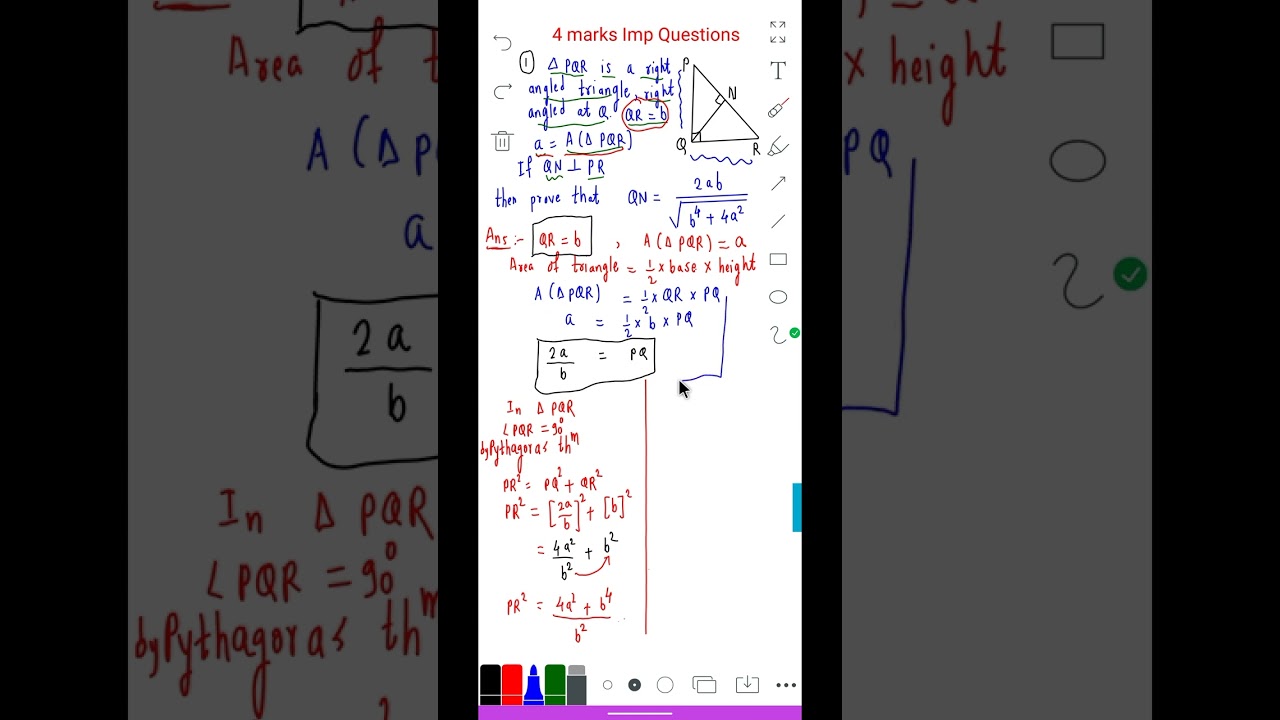 4 marks Imp Questions
① Δ PQR is a right
angled triangle, right
angled at Q. QR = b
a = A(Δ PQR)
If QN ⊥ PR
then prove that QN = 2ab / √(b⁴ + 4a²)
P
N
Q
R
Ans :- QR = b , A(Δ PQR) = a
Area of triangle = 1/2 × base × height
A(Δ PQR) = 1/2 × QR × PQ
a = 1/2 × b × PQ
2a/b = PQ
In Δ PQR
∠PQR = 90°
by Pythagoras thᵐ
PR² = PQ² + QR²
PR² = [2a/b]² + [b]²
= 4a²/b² + b²
PR² = (4a² + b⁴)/b²
T
Area of t
A (Δ PQ
a
2a
b
In Δ PQR
∠PQR = 90°
by Pythagoras thᵐ
× height
PQ